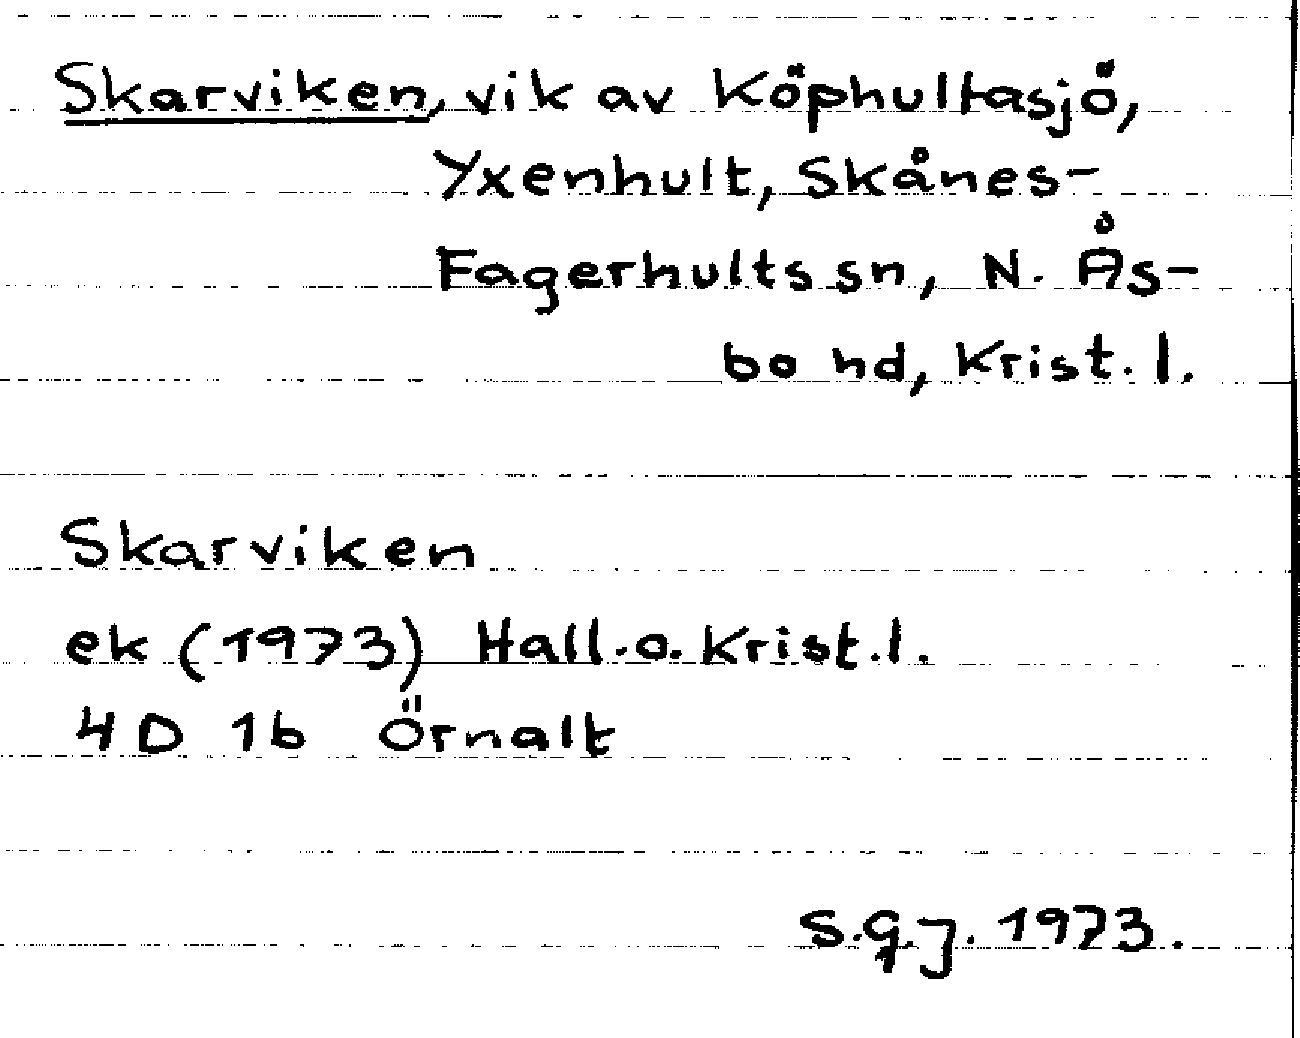 Skarviken, vik av Köphultasjö,
Yxenhult, Skånes-
Fagerhults sn, N. Ås-
bo hd, Krist. l.
Skarviken
ek (1973) Hall.o. Krist.l.
4D 1b Örnalt
S.G.J. 1973.